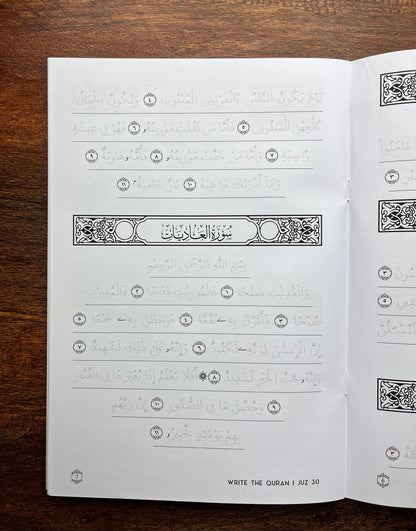 يَوْمَ يَكُونُ النَّاسُ كَالْفَرَاشِ الْمَبْثُوثِ ٤ وَتَكُونُ الْجِبَالُ
كَالْعِهْنِ الْمَنْفُوشِ ٥ فَأَمَّا مَن ثَقُلَتْ مَوَٰزِينُهُۥ ٦ فَهُوَ فِى عِيشَةٍ
رَّاضِيَةٍ ٧ وَأَمَّا مَنْ خَفَّتْ مَوَٰزِينُهُۥ ٨ فَأُمُّهُۥ هَاوِيَةٌ ٩
وَمَآ أَدْرَىٰكَ مَا هِيَهْ ١٠ نَارٌ حَامِيَةٌۢ ١١
سُورَةُ العَادِيَات
بِسْمِ اللَّهِ الرَّحْمَٰنِ الرَّحِيمِ
وَالْعَٰدِيَٰتِ ضَبْحًا ١ فَالْمُورِيَٰتِ قَدْحًا ٢ فَالْمُغِيرَٰتِ
صُبْحًا ٣ فَأَثَرْنَ بِهِۦ نَقْعًا ٤ فَوَسَطْنَ بِهِۦ جَمْعًا ٥
إِنَّ الْإِنسَٰنَ لِرَبِّهِۦ لَكَنُودٌ ٦ وَإِنَّهُۥ عَلَىٰ ذَٰلِكَ لَشَهِيدٌ ٧
وَإِنَّهُۥ لِحُبِّ الْخَيْرِ لَشَدِيدٌ ٨ ۞ أَفَلَا يَعْلَمُ إِذَا بُعْثِرَ مَا فِى الْقُبُورِ
٩ وَحُصِّلَ مَا فِى الصُّدُورِ ١٠ إِنَّ رَبَّهُم
بِهِمْ يَوْمَئِذٍ لَّخَبِيرٌۢ ١١
WRITE THE QURAN | JUZ 30